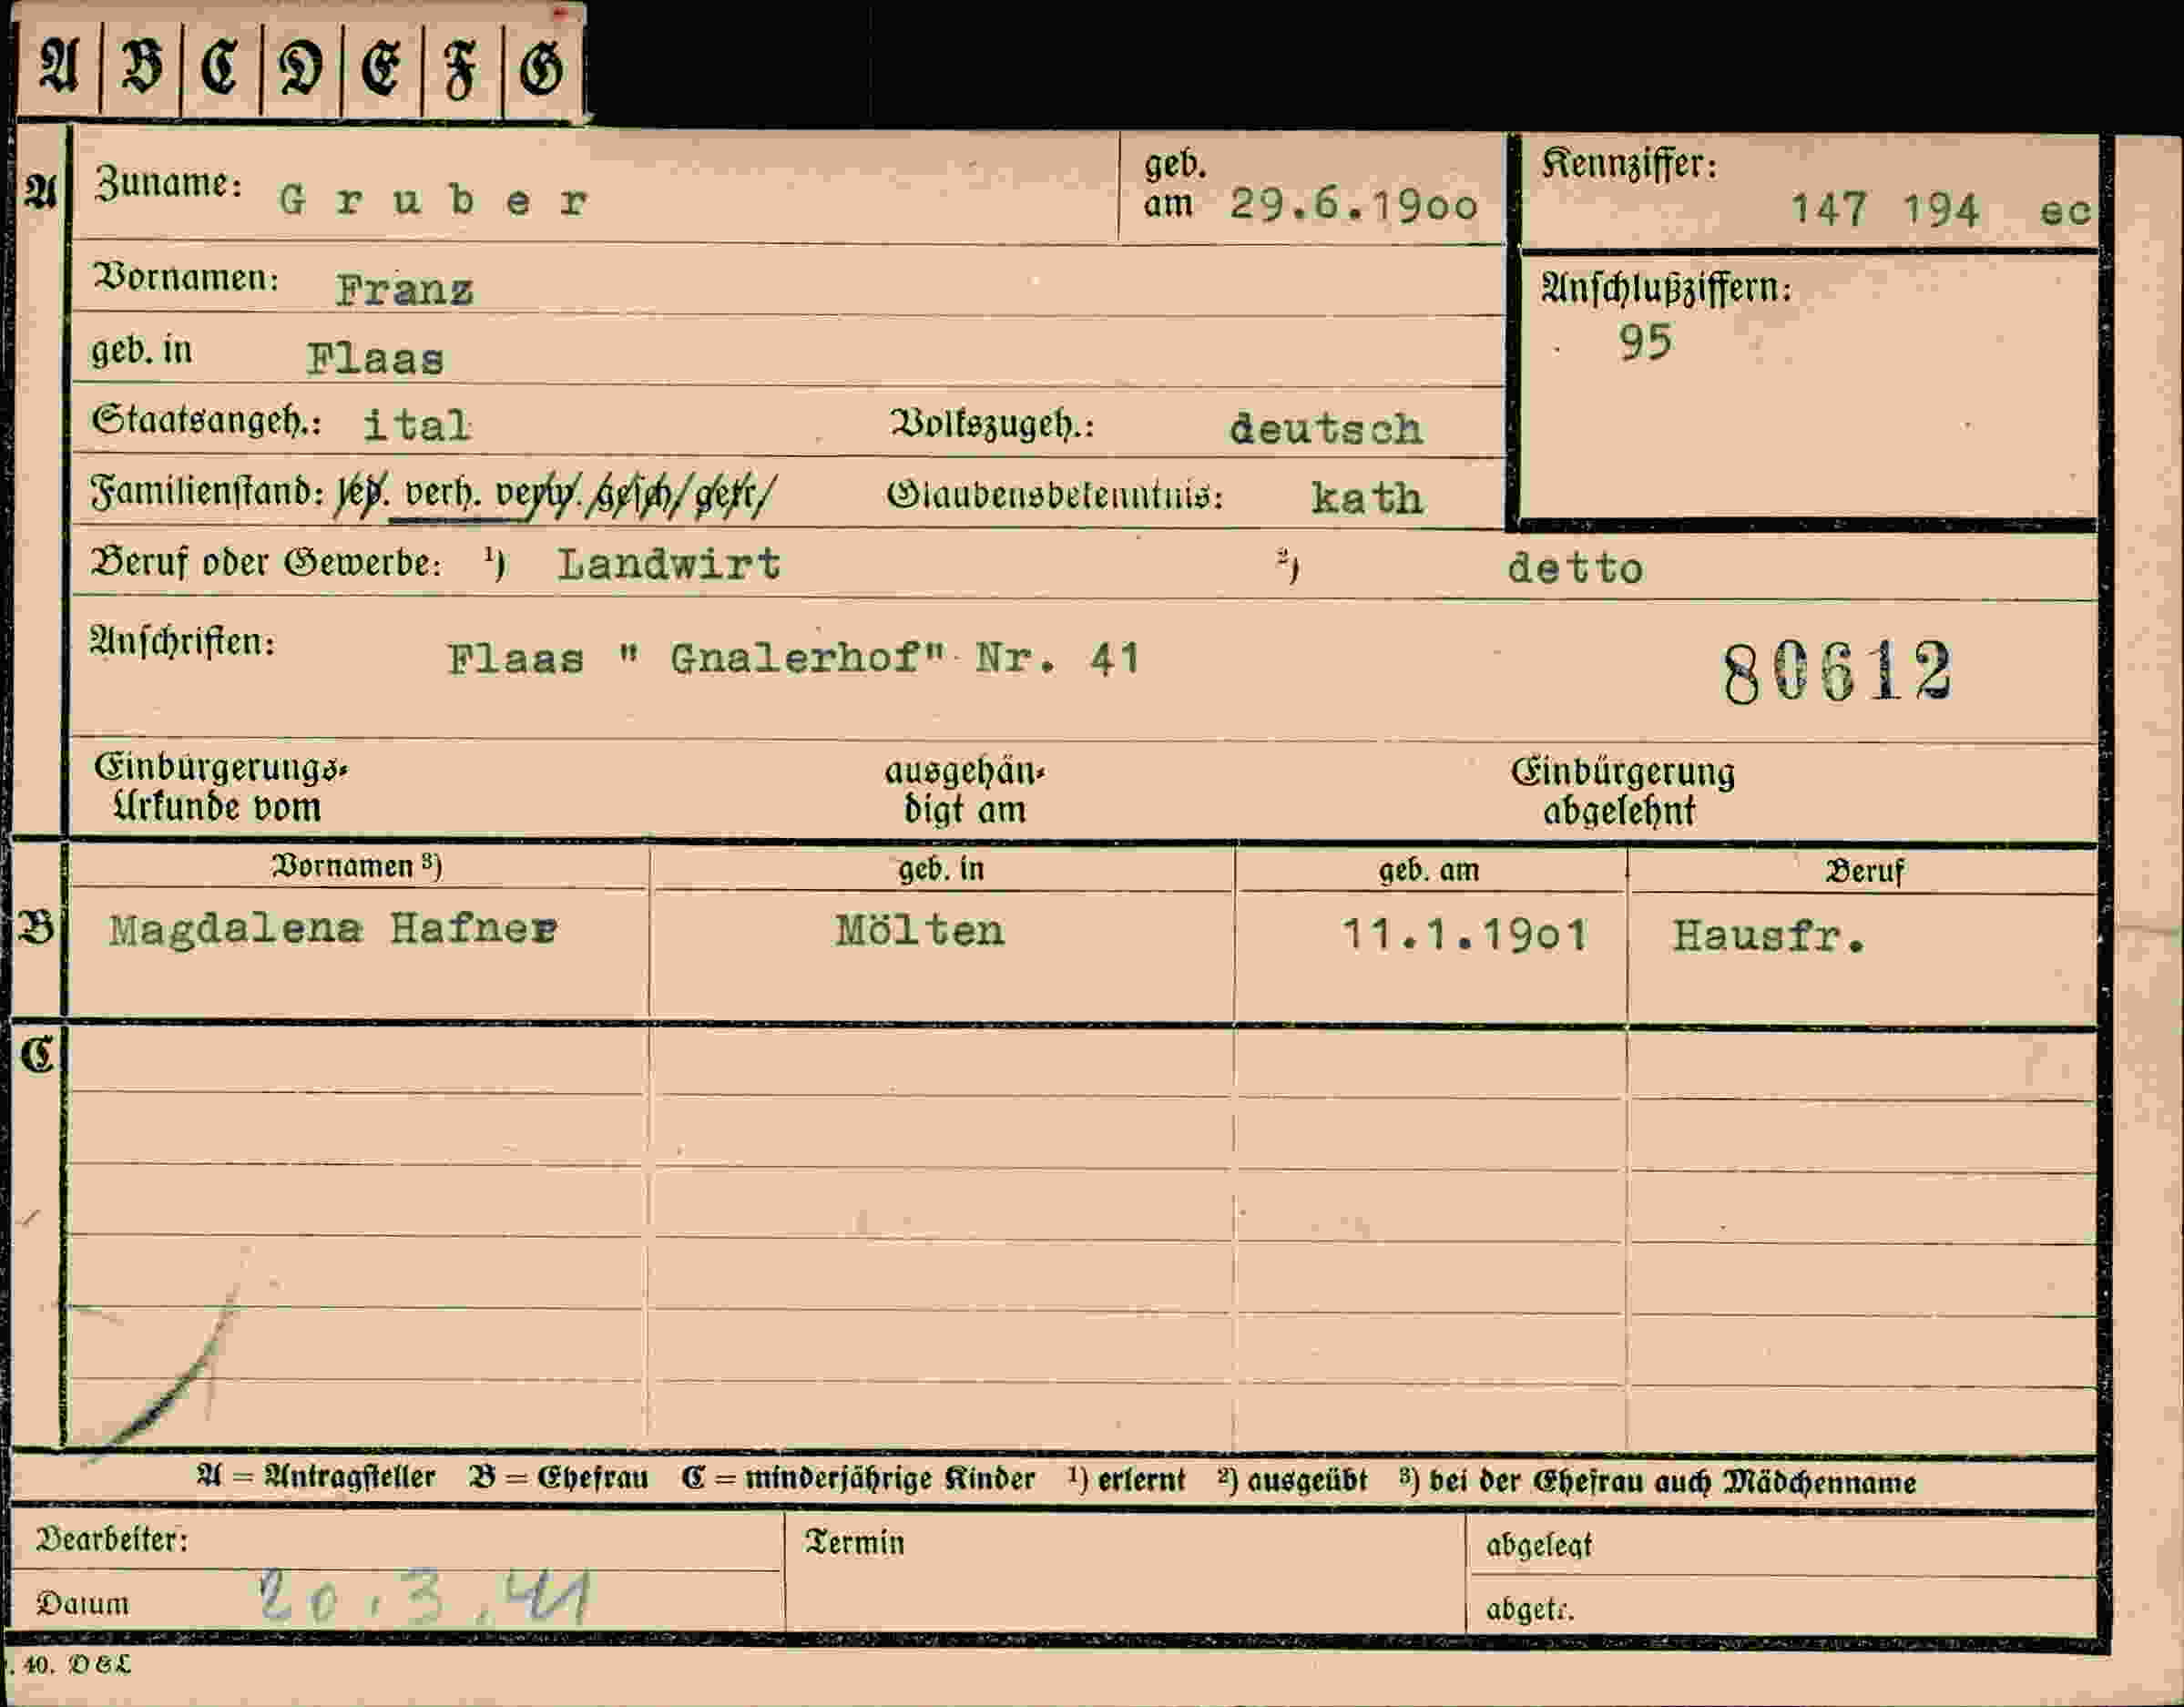 A B C D E F G
A Zuname: Gruber geb. am 29.6.19oo Kennziffer: 147 194 ec
Vornamen: Franz Anschlußziffern: 95
geb. in Flaas
Staatsangeh.: ital Volkszugeh.: deutsch
Familienstand: led. verh. verw. gesch. getr. Glaubensbekenntnis: kath
Beruf oder Gewerbe: ¹) Landwirt ²) detto
Anschriften: Flaas " Gnalerhof" Nr. 41 80612
Einbürgerungs- ausgehän- Einbürgerung
Urkunde vom digt am abgelehnt
Vornamen ³) geb. in geb. am Beruf
B Magdalena Hafner Mölten 11.1.19o1 Hausfr.
C
A = Antragsteller B = Ehefrau C = minderjährige Kinder ¹) erlernt ²) ausgeübt ³) bei der Ehefrau auch Mädchenname
Bearbeiter: Termin abgelegt
Datum 20.3.41 abgetr.
. 40. D & L